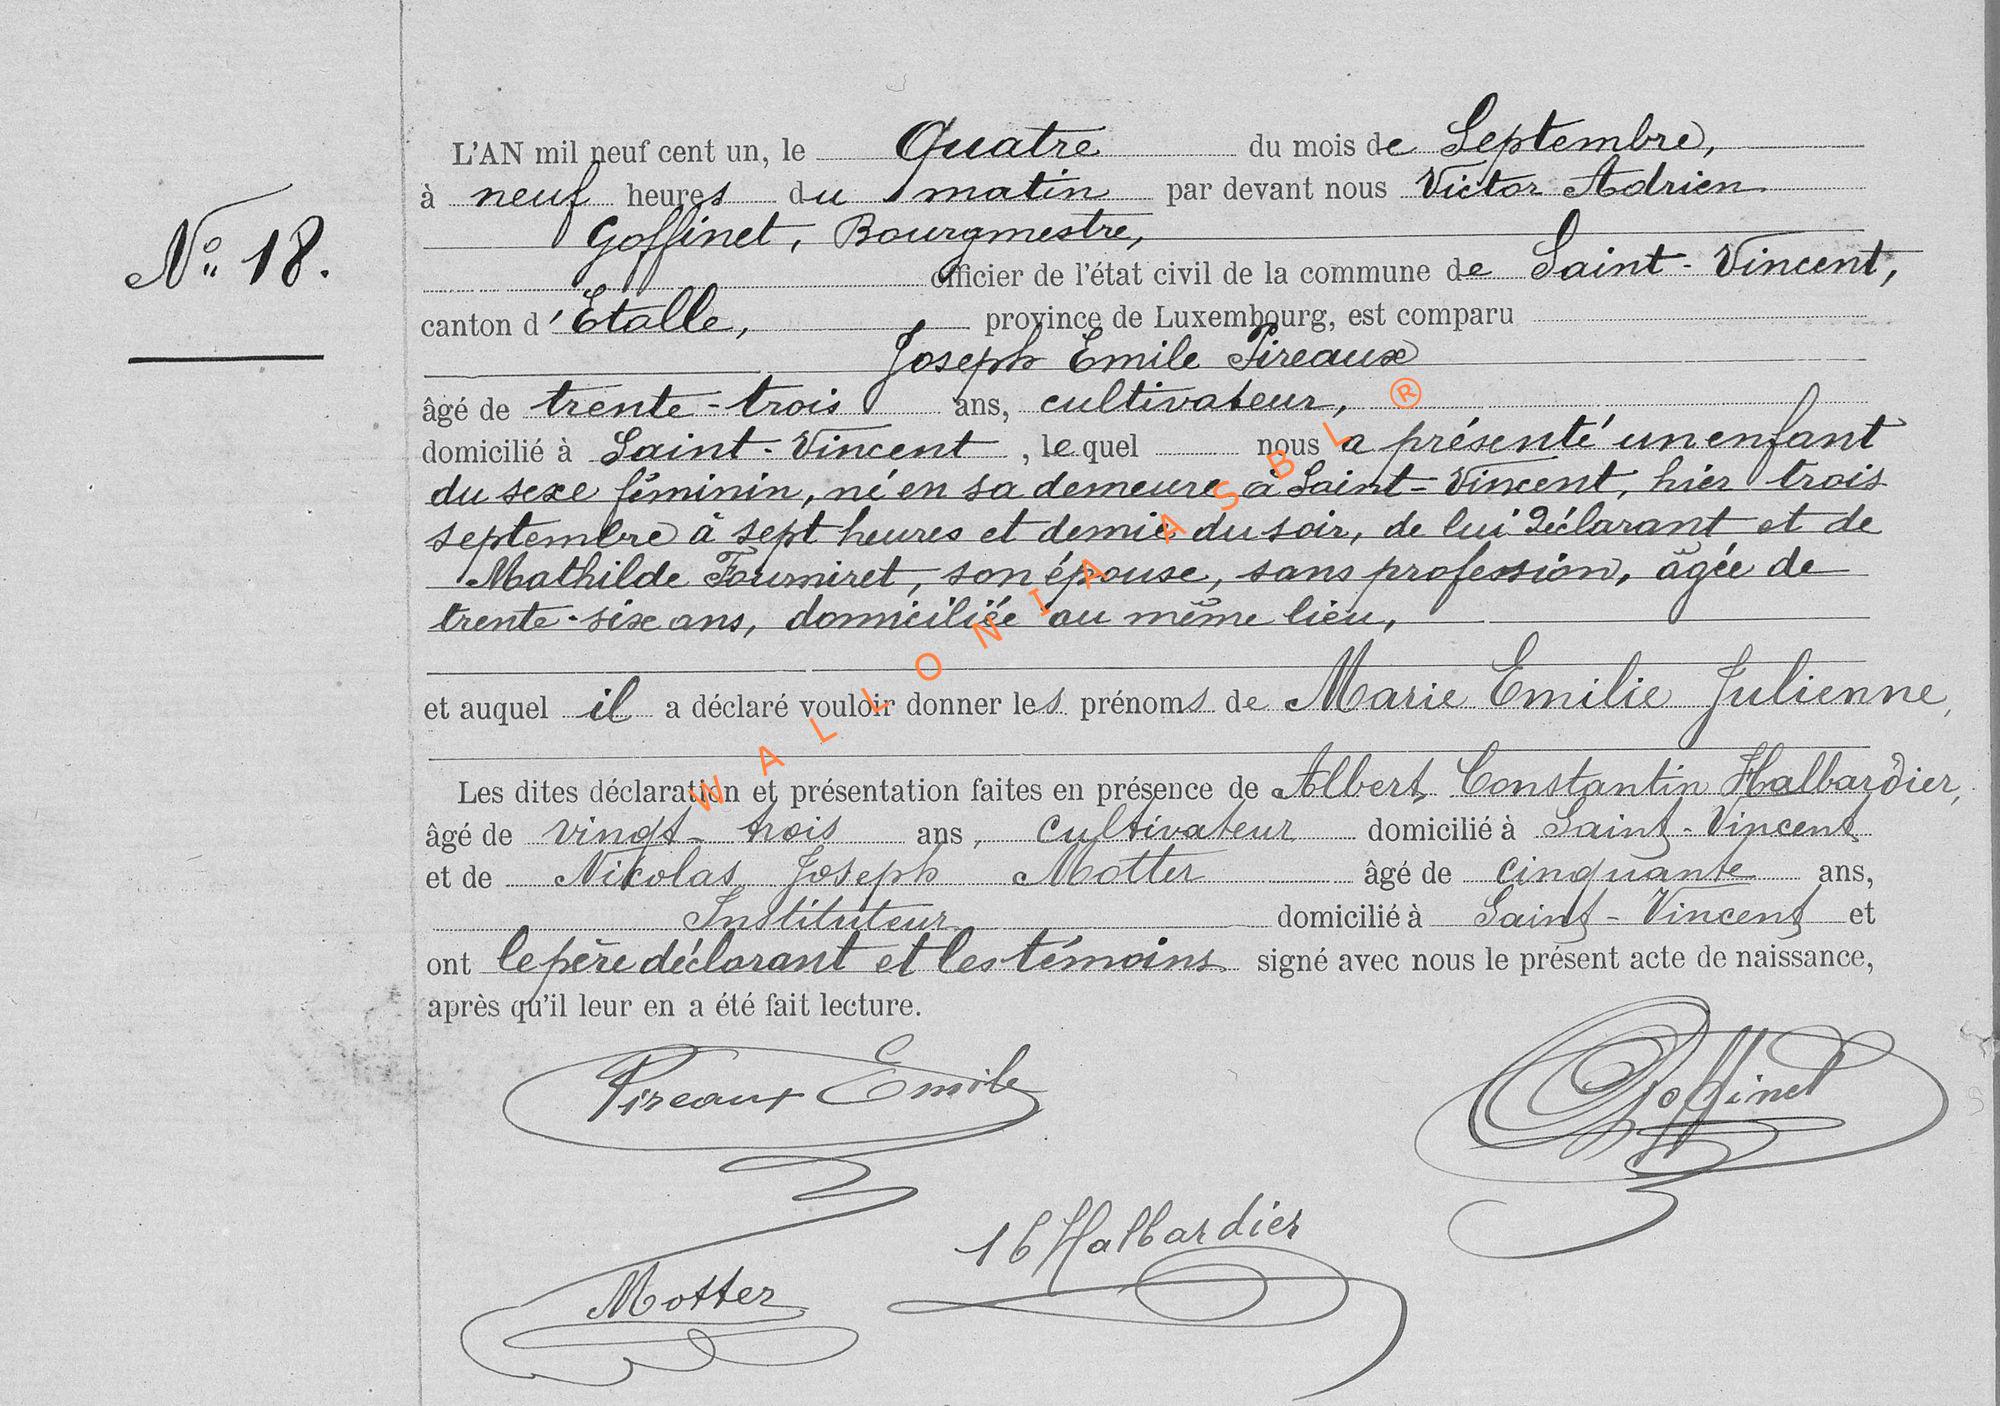 L'AN mil neuf cent un, le Quatre du mois de Septembre,
à neuf heures du matin par devant nous Victor Adrien
N° 18.
Goffinet, Bourgmestre,
officier de l'état civil de la commune de Saint-Vincent,
canton d'Etalle, province de Luxembourg, est comparu
Joseph Emile Pireaux
âgé de trente-trois ans, cultivateur,
domicilié à Saint-Vincent, lequel nous a présenté un enfant
du sexe féminin, né en sa demeure à Saint-Vincent, hier trois
septembre à sept heures et demie du soir, de lui déclarant et de
Mathilde Fourniret, son épouse, sans profession, âgée de
trente-six ans, domiciliée au même lieu,
et auquel il a déclaré vouloir donner les prénoms de Marie Emilie Julienne,
Les dites déclaration et présentation faites en présence de Albert Constantin Halbardier,
âgé de vingt-trois ans, cultivateur domicilié à Saint-Vincent
et de Nicolas Joseph Motter âgé de cinquante ans,
Instituteur domicilié à Saint-Vincent et
ont le père déclarant et les témoins signé avec nous le présent acte de naissance,
après qu'il leur en a été fait lecture.
Pireaux Emile
Goffinet
Halbardier
Motter
WALLONIA ASBL ®